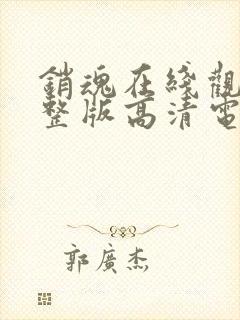 銷魂在綫觀
整版高清電
郭廣杰